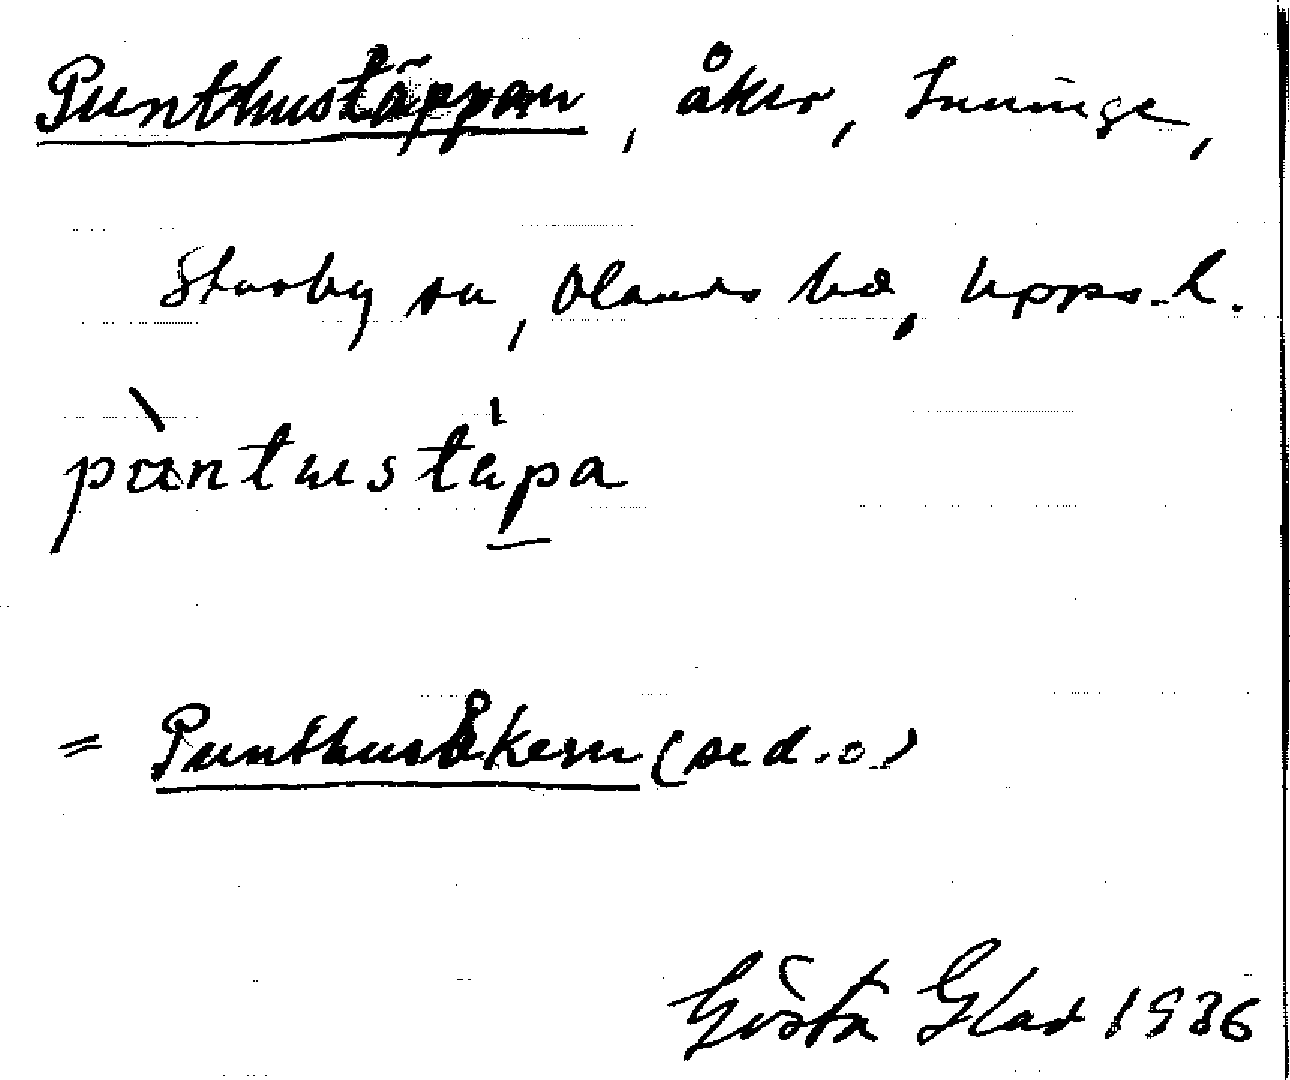 Punthustäppan, åker, Inninge,
Starby sn, Olands hd, Upps. l.
pùntustäpa
= Punthusåkern (se d. o.)
Gösta Glad 1936